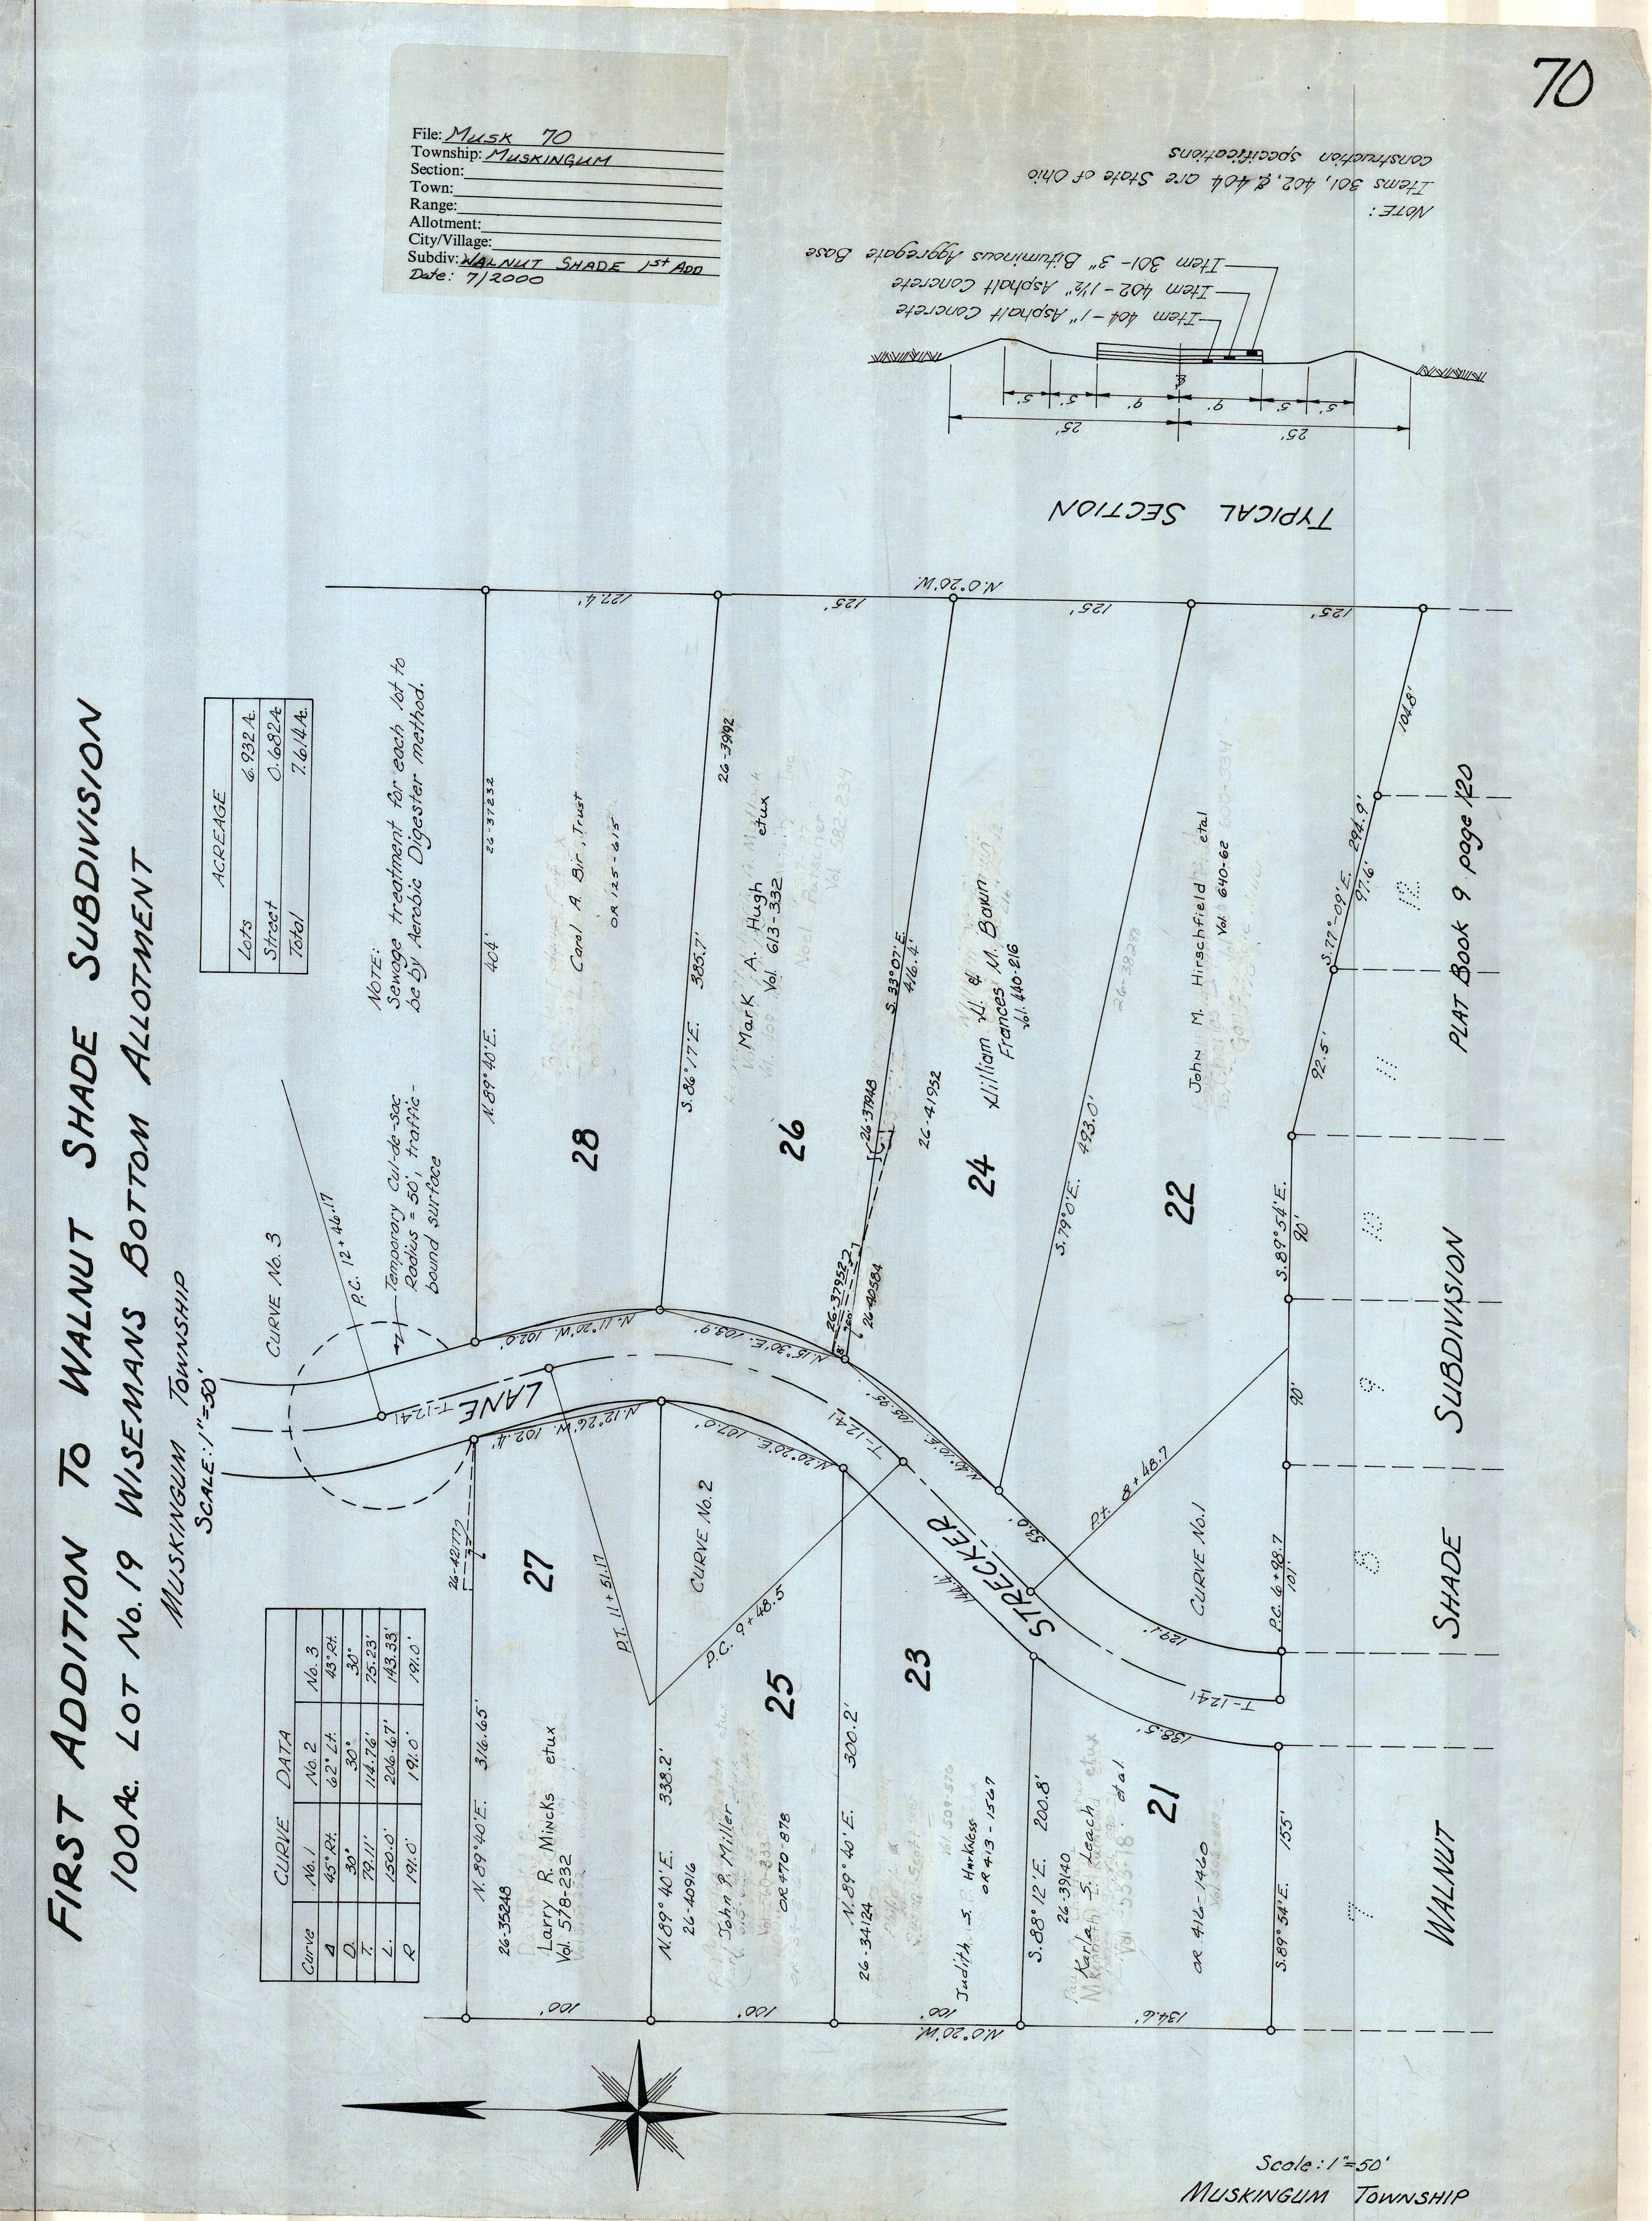 70
File: Musk 70
Township: MUSKINGUM
Section:
Town:
Range:
Allotment:
City/Village:
Subdiv: WALNUT SHADE 1st ADD
Date: 7/2000
FIRST ADDITION TO WALNUT SHADE SUBDIVISION
100 Ac. LOT No. 19 WISEMANS BOTTOM ALLOTMENT
MUSKINGUM TOWNSHIP
SCALE: 1"=50'
CURVE DATA
Curve No. 1 No. 2 No. 3
Δ 45° Rt. 62° Lt. 43° Rt.
D. 30° 30° 30°
T. 79.11' 114.76' 75.23'
L. 150.0' 206.67' 143.33'
R 191.0' 191.0' 191.0'
ACREAGE
Lots 6.932 A.
Street 0.682 A.
Total 7.614 A.
NOTE:
Sewage treatment for each lot to
be by Aerobic Digester method.
CURVE No. 3
P.C. 12+46.17
Temporary Cul-de-sac
Radius = 50', traffic-
bound surface
N. 89° 40' E. 404' 26-37232
28
Carol A. Bir, Trust
OR 125-615
127.4'
S. 86° 17' E. 385.7'
26-39192
26
Mark A. Hugh etux
Vol. 613-332
125'
N. 0° 20' W.
S. 33° 07' E.
416.4'
26-37948
26-37952
26-40584
26-41952
24
William H. &
Frances M. Bowman
Vol. 440-216
125'
S. 79° 0' E. 493.0'
26-38288
22
John M. Hirschfield etal
Vol. 640-62
125'
S. 89° 54' E.
90'
90'
P.C. 6+98.7
101'
92.5'
S. 77°-09' E. 294.9'
97.6'
104.8'
LANE
T-1241
N. 11° 20' W. 102.0'
N. 15° 30' E. 103.9'
N. 12° 26' W. 102.4'
N. 20° 20' E. 107.0'
T-1241
N. 40° 10' E. 105.95'
STRECKER
53.0'
144.4'
129.1'
138.5'
T-1241
P.T. 11+51.17
CURVE No. 2
P.C. 9+48.5
P.t. 8+48.7
CURVE No. 1
26-42177
27
N. 89° 40' E. 316.65'
26-35248
Larry R. Mincks etux
Vol. 578-232
100'
N. 89° 40' E. 338.2'
26-40916
25
John P. Miller
OR 470-878
100'
N. 89° 40' E. 300.2'
26-34124
23
Judith S. Harkness
OR 413-1567
100'
N. 0° 20' W.
S. 88° 12' E. 200.8'
26-39140
Karla S. Leach
et al
21
OR 416-1460
134.6'
S. 89° 54' E. 155'
7 8 9 10 11 12
WALNUT SHADE SUBDIVISION PLAT BOOK 9 page 120
TYPICAL SECTION
25' 25'
5' 5' 9' 9' 5' 5'
℄
Item 404-1" Asphalt Concrete
Item 402-1½" Asphalt Concrete
Item 301-3" Bituminous Aggregate Base
NOTE:
Items 301, 402, & 404 are State of Ohio
construction specifications
Scale: 1"=50'
MUSKINGUM TOWNSHIP